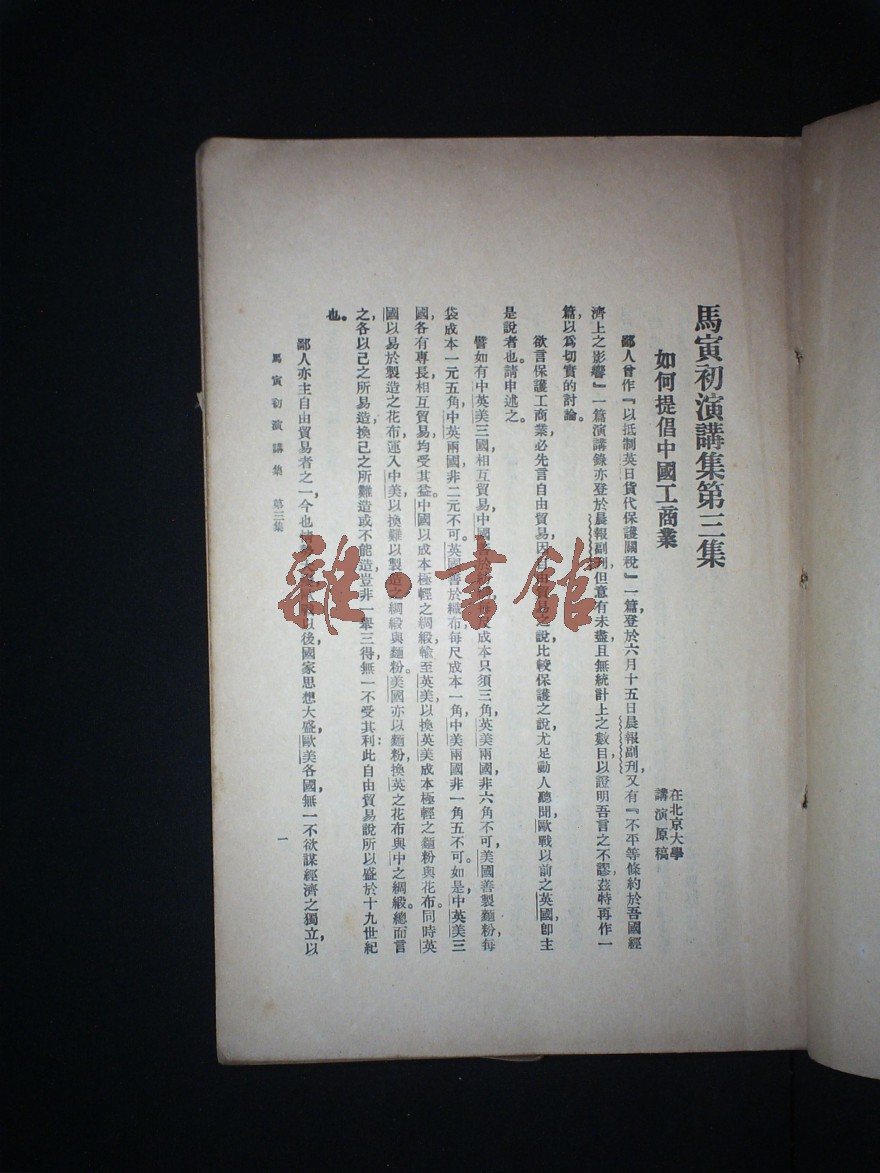 馬寅初演講集第三集
如何提倡中國工商業
在北京大學
講演原稿
鄙人曾作『以抵制英日貨代保護關稅』一篇登於六月十五日晨報副刊,又有『不平等條約於吾國經
濟上之影響』一篇演講錄亦登於晨報副刊但意有未盡且無統計上之數目以證明吾言之不謬,茲特再作一
篇,以爲切實的討論。
欲言保護工商業,必先言自由貿易,因自由貿易之說比較保護之說尤足動人聽聞,歐戰以前之英國,卽主
是說者也。請申述之。
譬如有中英美三國,相互貿易,中國善於 每尺成本只須三角,英美兩國,非六角不可,美國善製麵粉每
袋成本一元五角,中英兩國,非二元不可。英國善於織布每尺成本一角,中美兩國非一角五不可。如是,中英美三
國各有專長,相互貿易,均受其益。中國以成本極輕之綢緞,輸至英美,以換英美成本極輕之麵粉與花布。同時英
國以易於製造之花布,運入中美,以換難以製造之綢緞與麵粉。美國亦以麵粉,換英之花布與中之綢緞。總而言
之,各以己之所易造,換己之所難造或不能造,豈非一舉三得,無一不受其利,此自由貿易說所以盛於十九世紀
也。
鄙人亦主自由貿易者之一,今也情勢大變,歐戰以後,國家思想大盛,歐美各國,無一不欲謀經濟之獨立,以
馬寅初演講集 第三集
一
雜·書館